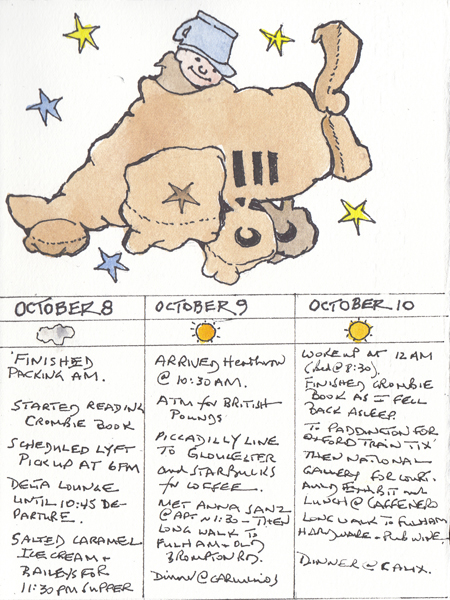 OCTOBER 8
'FINISHED
PACKING AM.
STARTED READING
CROMBIE BOOK
SCHEDULED LYFT
PICKUP AT 6PM
DELTA LOUNGE
UNTIL 10:45 DE-
PARTURE.
SALTED CARAMEL
ICE CREAM +
BAILEYS FOR
11:30 PM SUPPER
OCTOBER 9
ARRIVED Heathrow
@ 10:30 AM.
ATM for BRITISH
POUNDS
PICCADILLY LINE
TO GLOUCESTER
and STARBUCKS
for COFFEE.
MET ANNA SANZ
@ APT ~ 11:30 - THEN
LONG WALK TO
FULHAM + OLD
BROMPTON RD.
Dinner @
OCTOBER 10
WOKE UP AT 12 AM
(bed @ 8:30).
FINISHED CROMBIE
BOOK AS I FELL
BACK ASLEEP.
TO PADDINGTON FOR
OXFORD TRAIN TIX'
THEN NATIONAL
GALLERY FOR
EXHIBIT and
LUNCH @ CAFFENERO
LONG WALK TO FULHAM
HARDWARE + PUB WINE.
DINNER @